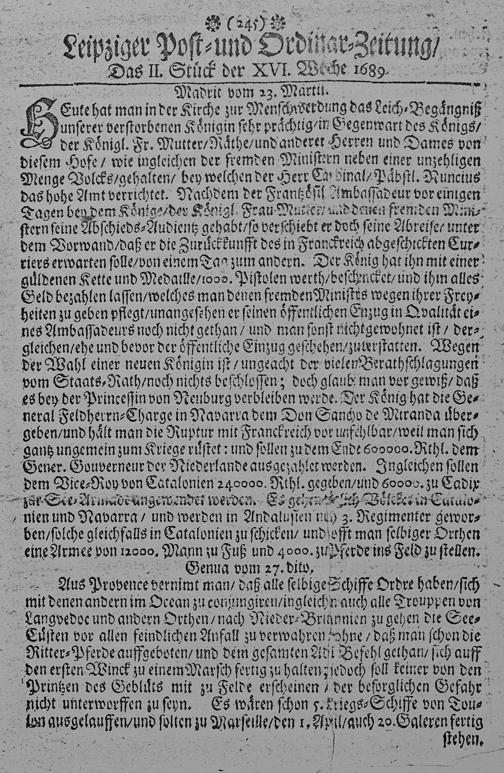 (245)
Leipziger Post- und Ordinar-Zeitung/
Das II. Stück der XVI. Woche 1689.
Madrit vom 23. Martii.
HEute hat man in der Kirche zur Menschwerdung das Leich-Begängniß
unserer verstorbenen Königin sehr prächtig/in Gegenwart des Königs/
der Königl. Fr. Mutter/Räthe/und anderer Herren und Dames von
diesem Hofe/ wie ingleichen der fremden Ministern neben einer unzehligen
Menge Volcks/gehalten/ bey welchen der Herr Cardinal/ Päbstl. Nuncius
das hohe Amt verrichtet. Nachdem der Frantzösis. Ambassadeur vor einigen
Tagen bey dem Könige/der Königl. Frau-Mutter und denen fremden Mini-
stern seine Abschieds-Audientz gehabt/so verschiebt er doch seine Abreise/ unter
dem Vorwand/daß er die Zurückkunfft des in Franckreich abgeschickten Cur-
riers erwarten solle/von einem Tag zum andern. Der König hat ihn mit einer
güldenen Kette und Medaille/1000. Pistolen werth/beschencket/und ihm alles
Geld bezahlen lassen/welches man denen fremden Ministris wegen ihrer Frey-
heiten zu geben pflegt/unangesehen er seinen öffentlichen Einzug in Qvalität ei-
nes Ambassadeurs noch nicht gethan/ und man sonst nicht gewohnet ist/ der-
gleichen/ehe und bevor der öffentliche Einzug geschehen/zu erstatten. Wegen
der Wahl einer neuen Königin ist/ ungeacht der vielen Berathschlagungen
vom Staats-Rath/noch nichts beschlossen; doch glaubt man vor gewiß/daß
es bey der Princessin von Neuburg verbleiben werde. Der König hat die Ge-
neral Feldherrn-Charge in Navarra dem Don Sancho de Miranda über-
geben/und hält man die Ruptur mit Franckreich vor unfehlbar/weil man sich
gantz ungemein zum Kriege rüstet: und sollen zu dem Ende 600000. Rthl. dem
Gener. Gouverneur der Niederlande ausgezahlet werden. Ingleichen sollen
dem Vice-Roy von Catalonien 240000. Rthl. gegeben/und 60000. zu Cadix
zur See-Armade angewendet werden. Es gehen Völcker in Catalo-
nien und Navarra/ und werden in Andalusien 3. Regimenter gewor-
ben/solche gleichfalls in Catalonien zu schicken/ und hofft man selbiger Orthen
eine Armee von 12000. Mann zu Fuß und 4000. zu Pferde ins Feld zu stellen.
Genua vom 27. dito,
Aus Provence vernimt man/ daß alle selbige Schiffe Ordre haben/sich
mit denen andern im Ocean zu conjungiren/ingleichen auch alle Trouppen von
Langvedoc und andern Orthen/ nach Nieder-Britannien zu gehen die See-
Cüsten vor allen feindlichen Anfall zu verwahren/ohne/ daß man schon die
Ritter-Pferde auffgeboten/ und dem gesamten Adel Befehl gethan/ sich auff
den ersten Winck zu einem Marsch fertig zu halten; jedoch soll keiner von den
Printzen des Geblüts mit zu Felde erscheinen/ der besorglichen Gefahr
nicht unterworffen zu seyn. Es wären schon 5. Kriegs-Schiffe von Tou-
lon ausgelauffen/und solten zu Marseille/den 1. April/auch 20. Galeren fertig
stehen.